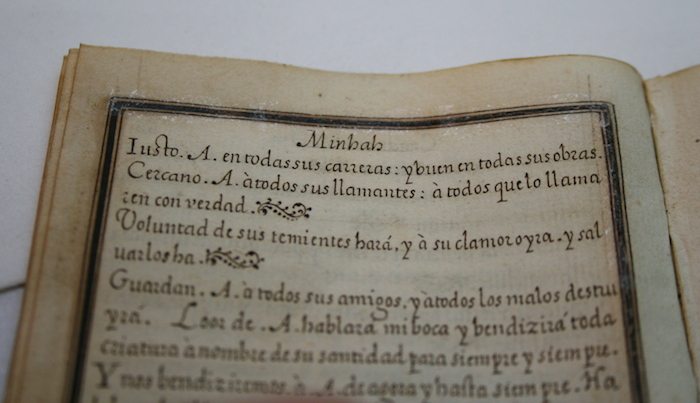 Minhah
Iusto. A. en todas sus carreras: y buen en todas sus obras.
Cercano. A. à todos sus llamantes: à todos que lo llama
ren con verdad.
Voluntad de sus temientes hará, y à su clamor oyra. y sal
uarlos ha.
Guardan. A. à todos sus amigos, y à todos los malos destru
yrá. Loor de. A. hablará mi boca y bendizirá toda
criatura à nombre de su santidad para siempre y siempre.
Y nos bendiziremos à. A. de agora y hasta siempre. Ha